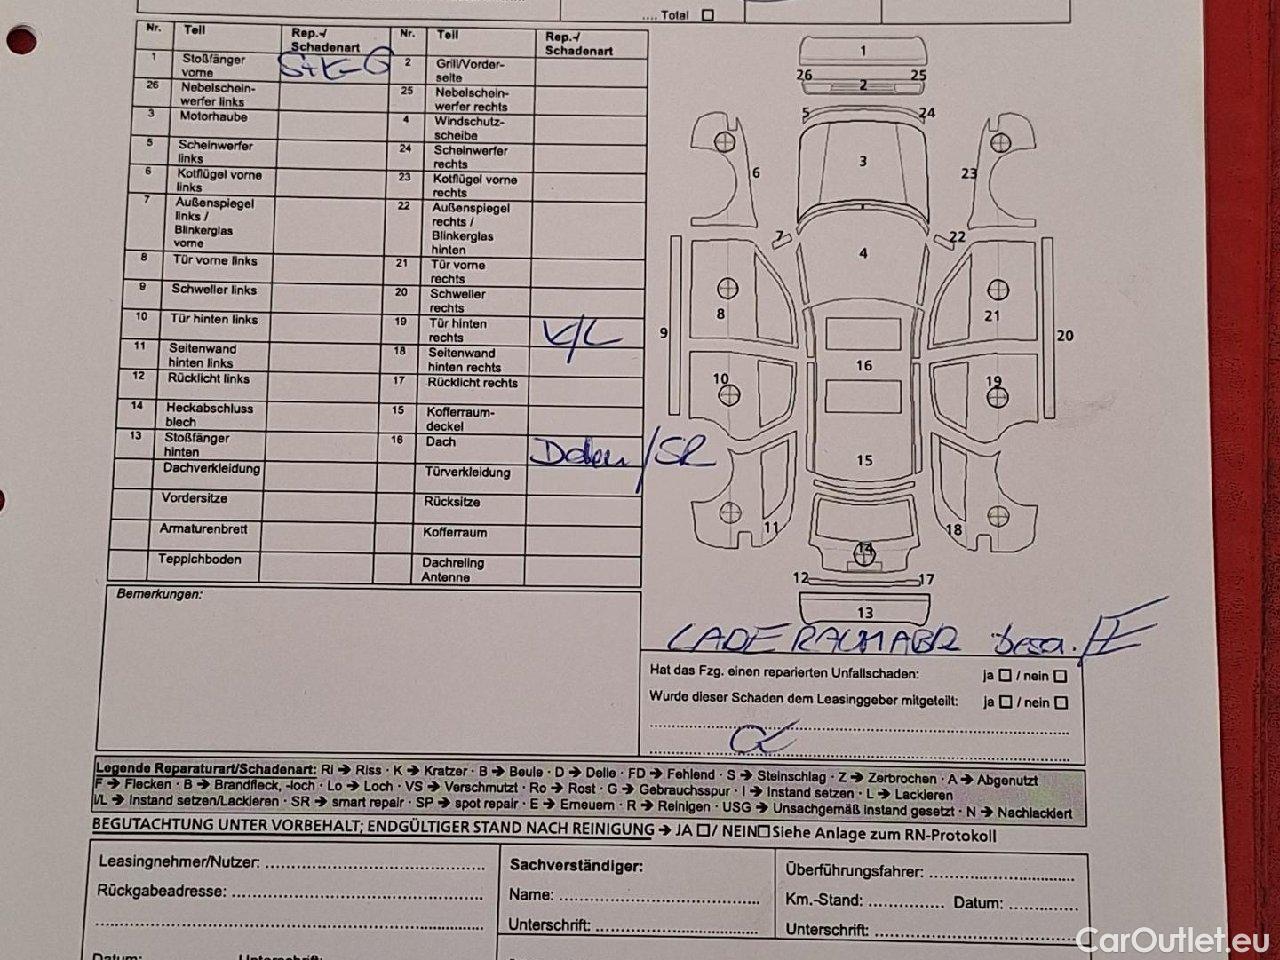 .... Total ☐
Nr. Teil Rep.-/ Schadenart Nr. Teil Rep.-/ Schadenart
1 Stoßfänger vorne S+K-G 2 Grill/Vorder-seite
26 Nebelschein-werfer links 25 Nebelschein-werfer rechts
3 Motorhaube 4 Windschutz-scheibe
5 Scheinwerfer links 24 Scheinwerfer rechts
6 Kotflügel vorne links 23 Kotflügel vorne rechts
7 Außenspiegel links / Blinkerglas vorne 22 Außenspiegel rechts / Blinkerglas hinten
8 Tür vorne links 21 Tür vorne rechts
9 Schweller links 20 Schweller rechts
10 Tür hinten links 19 Tür hinten rechts K/L
11 Seitenwand hinten links 18 Seitenwand hinten rechts
12 Rücklicht links 17 Rücklicht rechts
14 Heckabschluss blech 15 Kofferraum-deckel
13 Stoßfänger hinten 16 Dach Dellen/SR
Dachverkleidung Türverkleidung
Vordersitze Rücksitze
Armaturenbrett Kofferraum
Teppichboden Dachreling Antenne
Bemerkungen:
1
26 25
2
5 24
3
6 23
7 22
4
8 21
9 20
16
10 19
15
11 18
14
12 17
13
LADERAUMABD
Hat das Fzg. einen reparierten Unfallschaden: ja ☐ / nein ☐
Wurde dieser Schaden dem Leasinggeber mitgeteilt: ja ☐ / nein ☐
Legende Reparaturart/Schadenart: RI → Riss · K → Kratzer · B → Beule · D → Delle · FD → Fehlend · S → Steinschlag · Z → Zerbrochen · A → Abgenutzt
F → Flecken · B → Brandfleck, -loch · Lo → Loch · VS → Verschmutzt · Ro → Rost · G → Gebrauchsspur · I → Instand setzen · L → Lackieren
I/L → Instand setzen/Lackieren · SR → smart repair · SP → spot repair · E → Erneuern · R → Reinigen · USG → Unsachgemäß instand gesetzt · N → Nachlackiert
BEGUTACHTUNG UNTER VORBEHALT; ENDGÜLTIGER STAND NACH REINIGUNG → JA ☐ / NEIN ☐ Siehe Anlage zum RN-Protokoll
Leasingnehmer/Nutzer: Sachverständiger: Überführungsfahrer:
Rückgabeadresse: Name: Km.-Stand: Datum:
Unterschrift: Unterschrift:
Datum: Unterschrift:
CarOutlet.eu